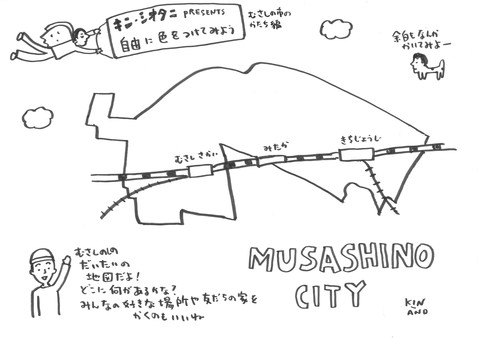 キン・シオタニ PRESENTS
自由に色をつけてみよう
むさしの市の
かたち編
余白もなんか
かいてみよー
むさしさかい
みたか
きちじょうじ
むさしのしの
だいたいの
地図だよ!
どこに何があるかな?
みんなの好きな場所や友だちの家を
かくのもいいね
MUSASHINO
CITY
KIN
AND